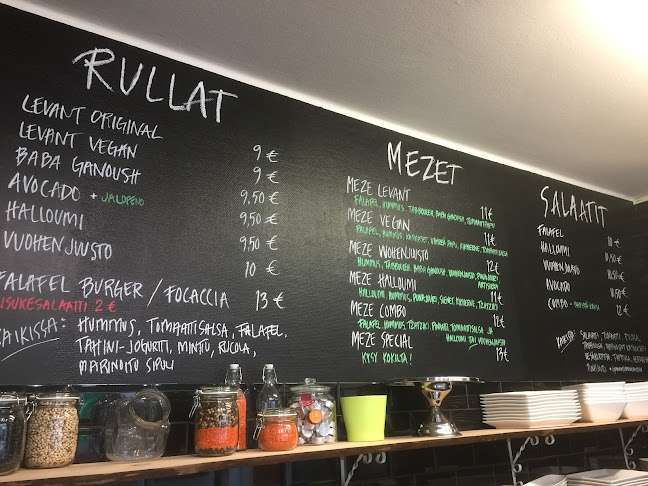 RULLAT
LEVANT ORIGINAL 9 €
LEVANT VEGAN 9 €
BABA GANOUSH 9,50 €
AVOCADO + JALOPENO 9,50 €
HALLOUMI 9,50 €
VUOHENJUUSTO 10 €
FALAFEL BURGER / FOCACCIA 13 €
ISUKESALAATTI 2 €
AIKISSA: HUMMUS, TOMAATTISALSA, FALAFEL,
TAHINI-JOGURTTI, MINTTU, RUCOLA,
MARINOITU SIPULI
MEZET
MEZE LEVANT 11 €
FALAFEL, HUMMUS, TABBOULEH, BABA GANOUSH, TOMAATTISALSA
MEZE VEGAN 11 €
FALAFEL, HUMMUS, KASVIKSET,
MEZE VUOHENJUUSTO 12 €
HUMMUS, TABBOULEH, BABA GANOUSH, VUOHENJUUSTO,
MEZE HALLOUMI 11 €
HALLOUMI, HUMMUS, TZATZIKI
MEZE COMBO 12 €
FALAFEL, HUMMUS, TZATZIKI, TOMAATTISALSA JA
HALLOUMI TAI VUOHENJUUSTO
MEZE SPECIAL 13 €
KYSY KOKILTA!
SALAATIT
FALAFEL 10 €
HALLOUMI 10,50
VUOHENJUUSTO 10,50
AVOCADO 10,50
COMBO 12 €